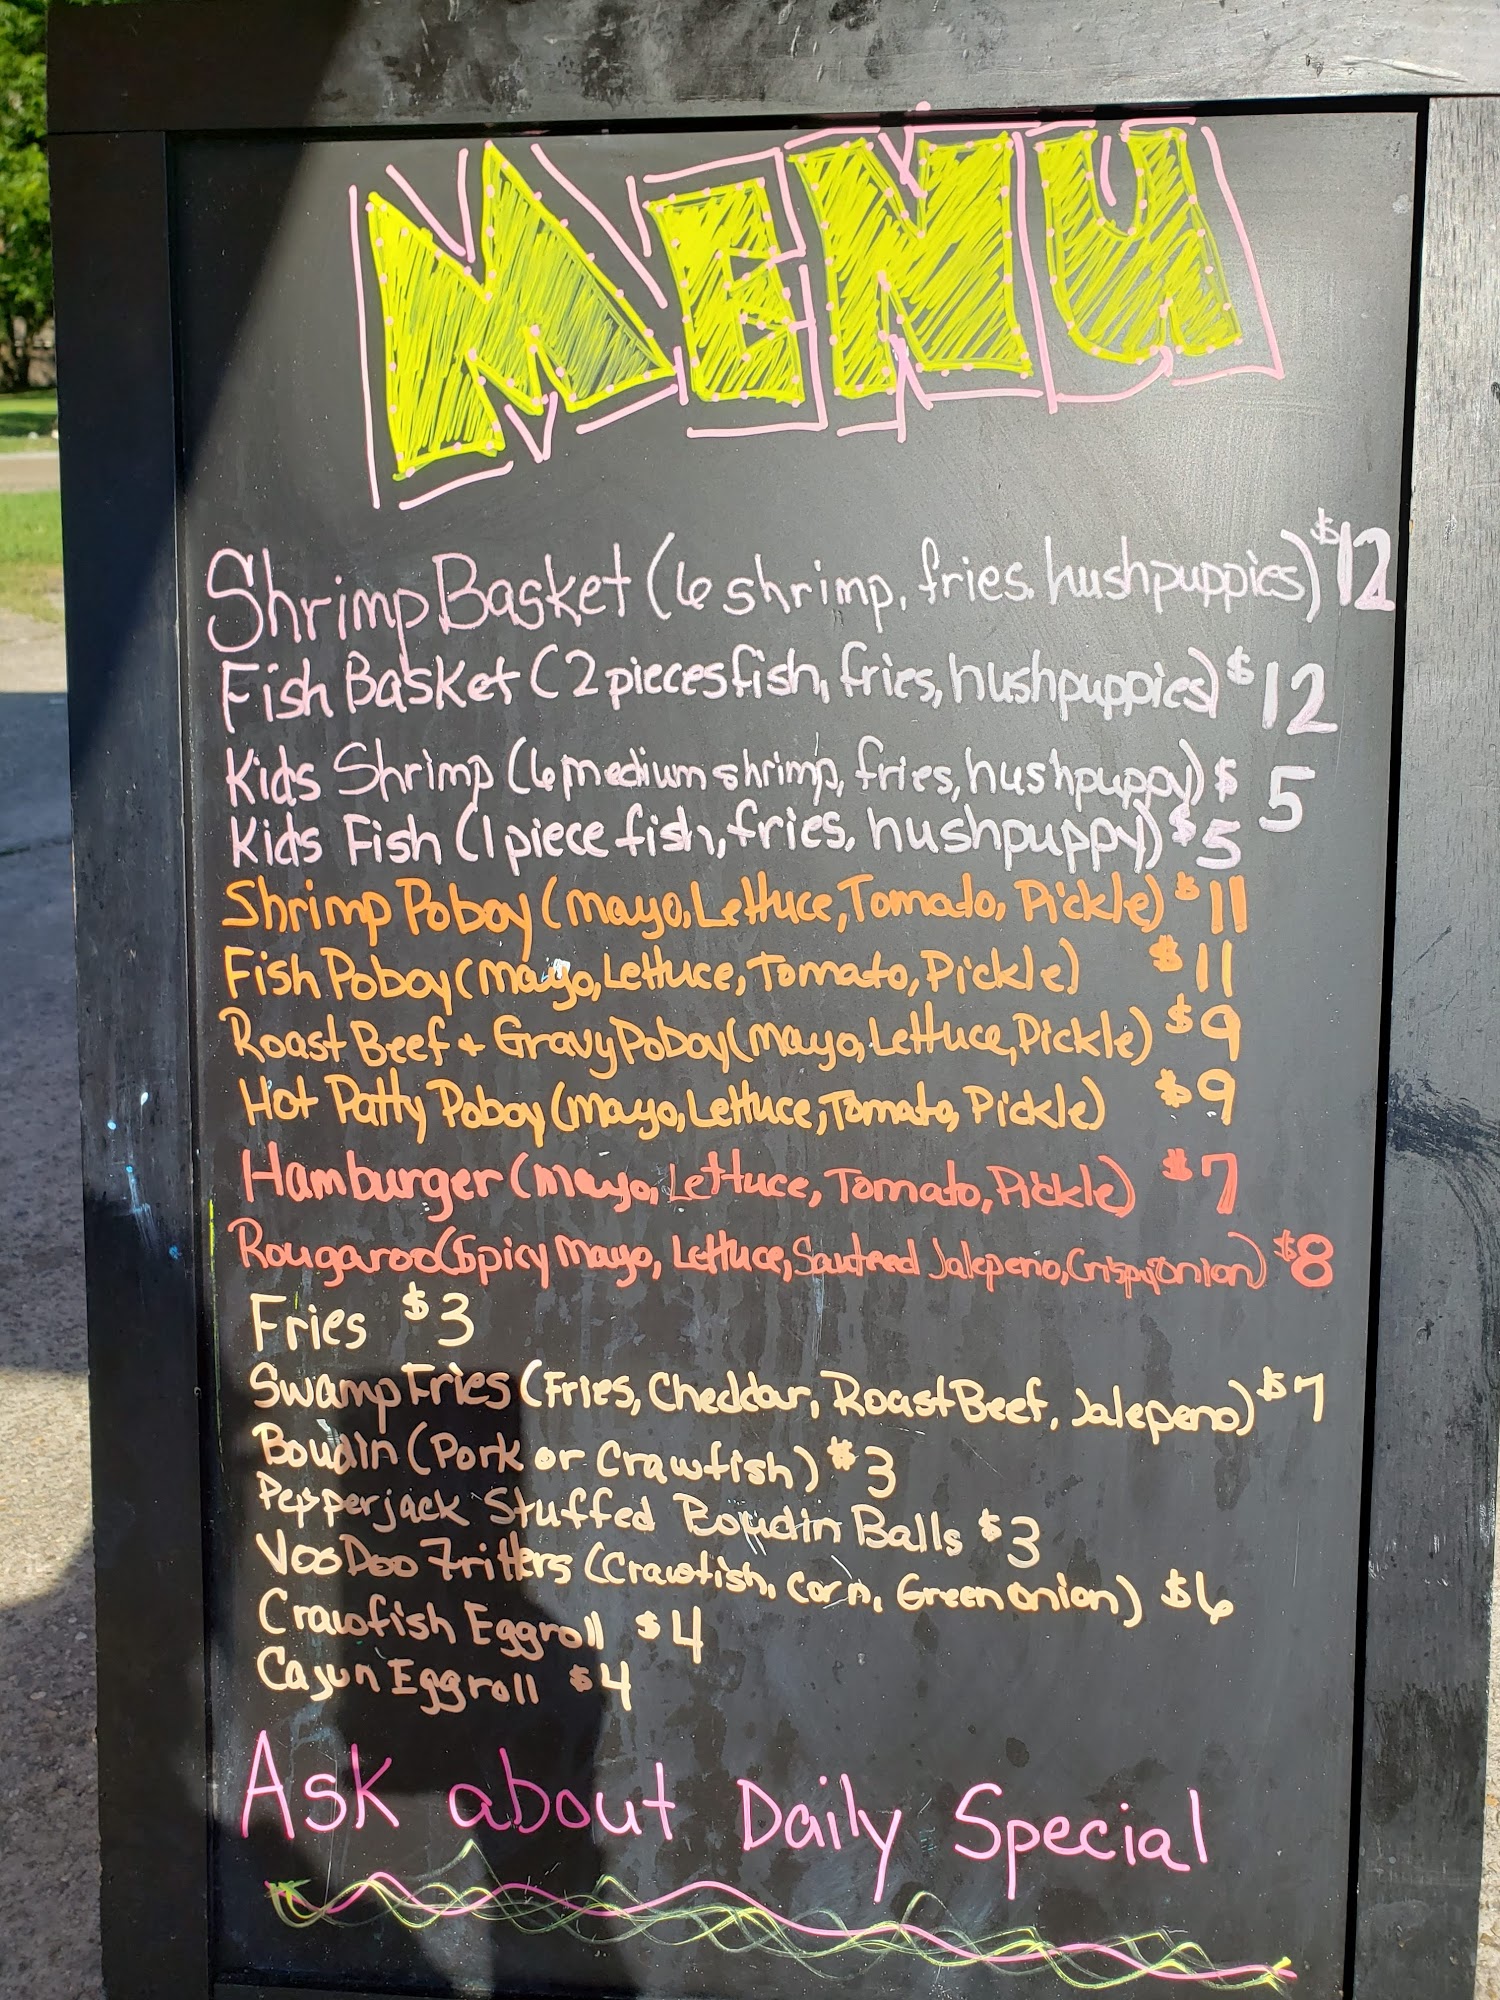 MENU
Shrimp Basket (6 shrimp, fries, hushpuppies) $12
Fish Basket (2 pieces fish, fries, hushpuppies) $12
Kids Shrimp (6 medium shrimp, fries, hushpuppy) $5
Kids Fish (1 piece fish, fries, hushpuppy) $5
Shrimp Poboy (Mayo, Lettuce, Tomato, Pickle) $11
Fish Poboy (Mayo, Lettuce, Tomato, Pickle) $11
Roast Beef + Gravy Poboy (Mayo, Lettuce, Pickle) $9
Hot Patty Poboy (Mayo, Lettuce, Tomato, Pickle) $9
Hamburger (Mayo, Lettuce, Tomato, Pickle) $7
Rougaroo (Spicy Mayo, Lettuce, Sauteed Jalepeno, Crispy Onion) $8
Fries $3
Swamp Fries (Fries, Cheddar, Roast Beef, Jalepeno) $7
Boudin (Pork or Crawfish) $3
Pepperjack Stuffed Boudin Balls $3
VooDoo Fritters (Crawfish, Corn, Green Onion) $6
Crawfish Eggroll $4
Cajun Eggroll $4
Ask about Daily Special